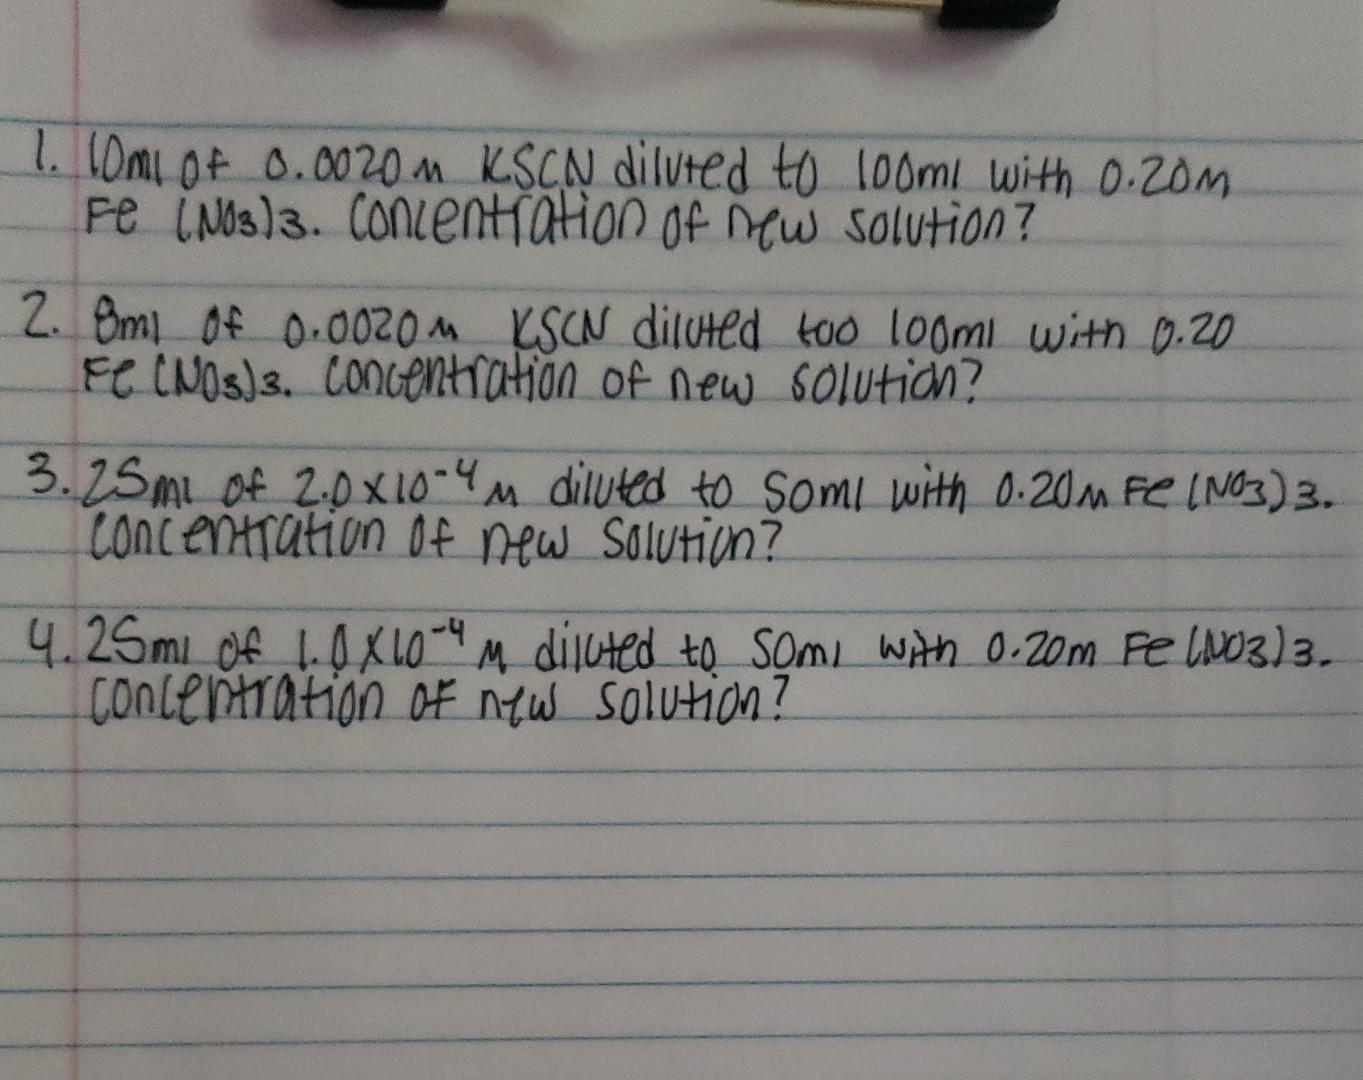 1. 10ml of 0.0020M KSCN diluted to 100ml with 0.20M
Fe (NO3)3. Concentration of new solution?
2. 8ml of 0.0020M KSCN diluted too 100ml with 0.20
Fe (NO3)3. Concentration of new solution?
3. 25ml of 2.0x10-4 M diluted to 50ml with 0.20M Fe (NO3)3.
Concentration of new solution?
4. 25ml of 1.0x10-4 M diluted to 50ml with 0.20m Fe (NO3)3.
Concentration of new solution?